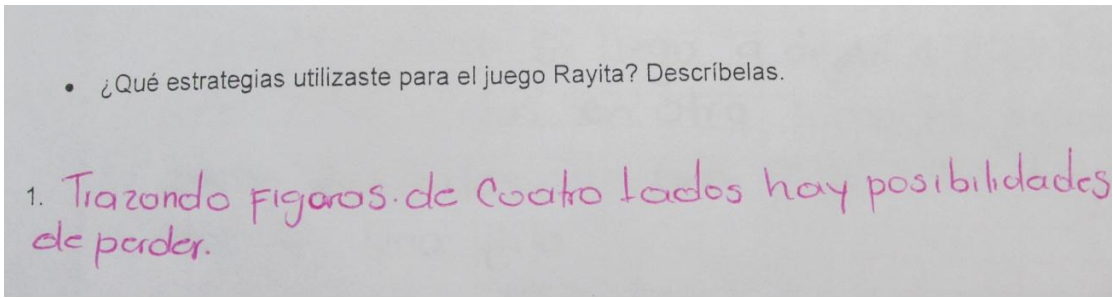 • ¿Qué estrategias utilizaste para el juego Rayita? Descríbelas.
1. Trazando Figuras. de Cuatro lados hay posibilidades
de perder.